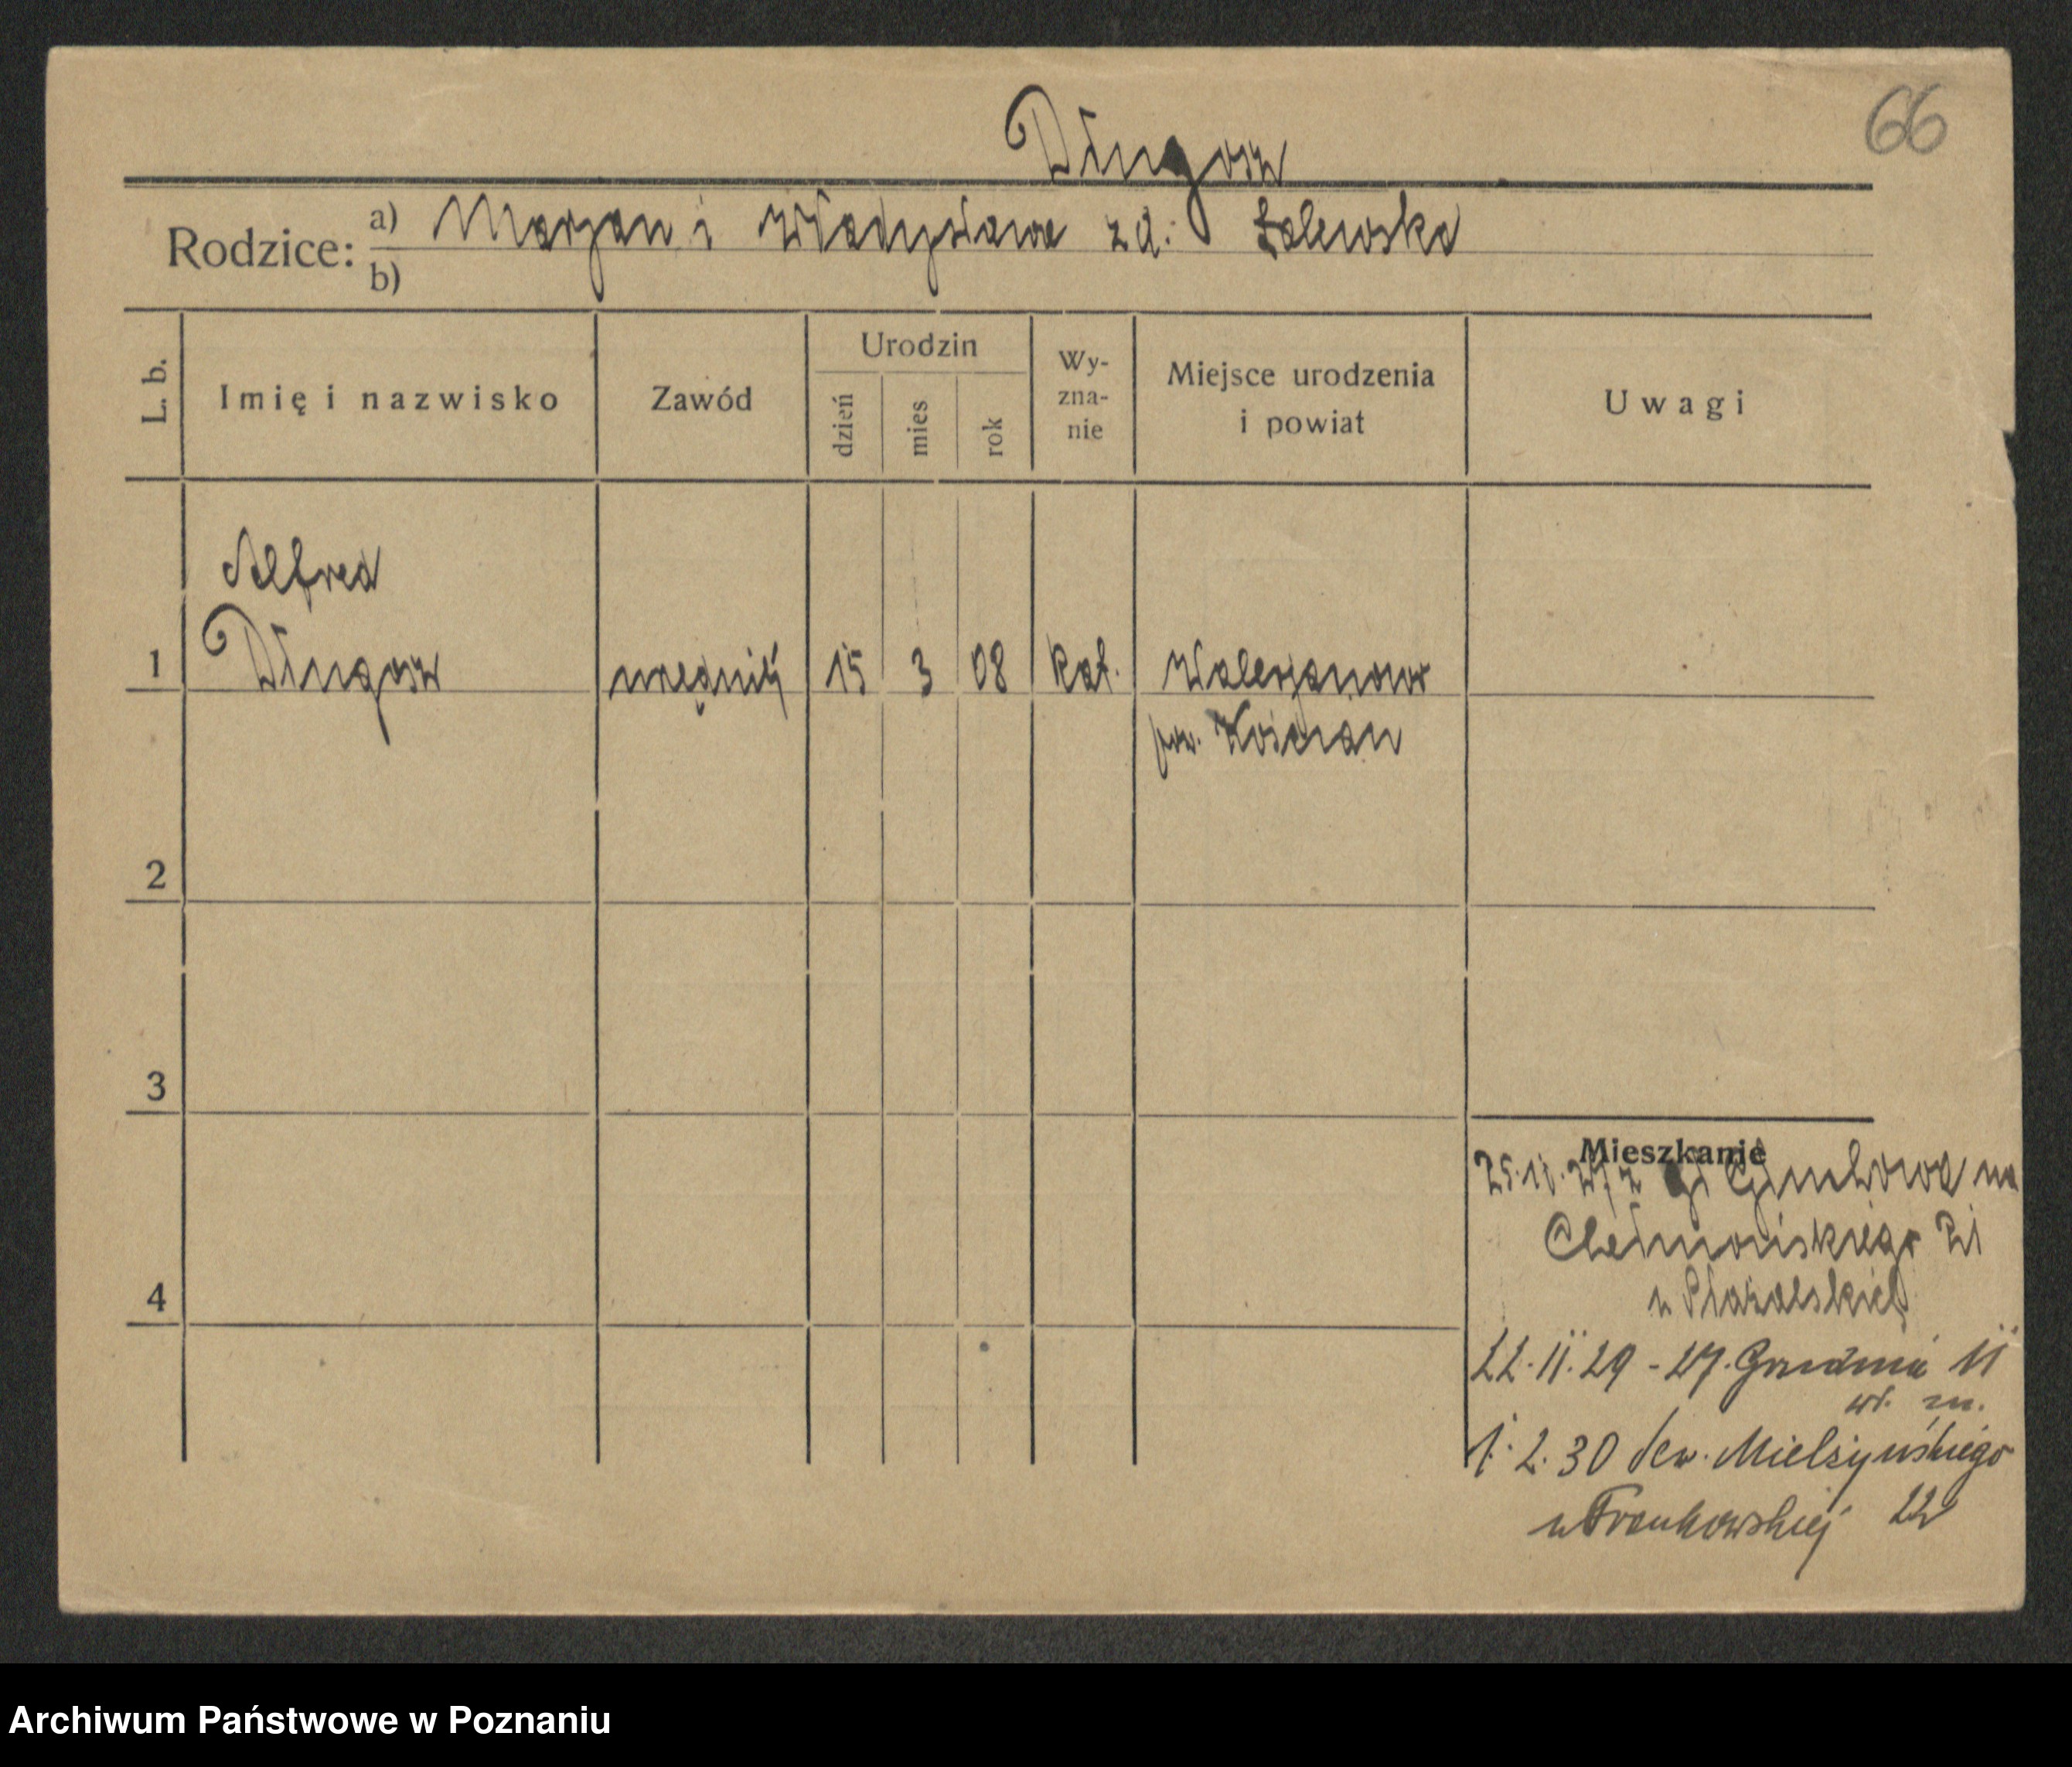 66
Długosz
Rodzice: a) Marjan i Władysława z d. Zalewska
b)
L. b.
Imię i nazwisko
Zawód
Urodzin
dzień
mies
rok
Wy-
zna-
nie
Miejsce urodzenia
i powiat
Uwagi
Alfred
1 Długosz urzędnik 15 3 08 kat. Walerjanowo
pow. Kościan
2
3
4
Mieszkanie
25.11. z na
Chełmońskiego 21
u
22.11.29 - 27. Grudnia 11
1.2.30 Sew. Mielżyńskiego
u Frankowskiej 22
Archiwum Państwowe w Poznaniu